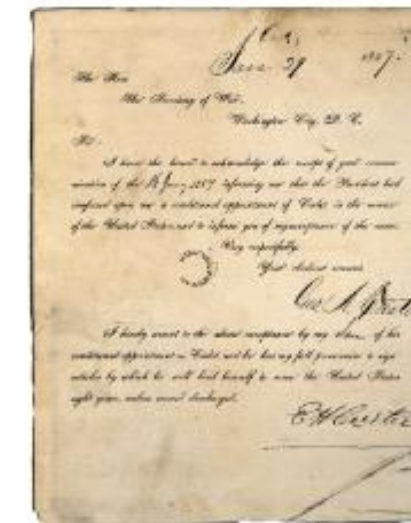 Jan 29 1857.
The Hon
The Secretary of War,
Washington City, D. C.
Sir.
I have the honor to acknowledge the receipt of your commu
nication of the 1857 informing me that the President has
conferred upon me a conditional appointment of Cadet in the service
of the United States and to inform you of my acceptance of the same.
Very respectfully,
Your obedient servant
Geo A.
I hereby assent to the above acceptance by my son of his
conditional appointment as Cadet and he has my full permission to sign
articles by which he will bind himself to serve the United States
eight years, unless sooner discharged.
E H Custer